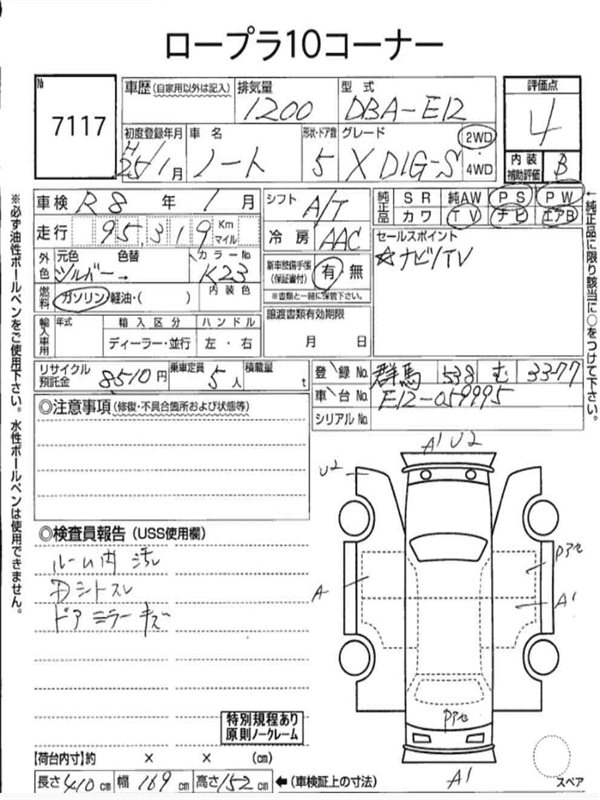 ロープラ10コーナー
No. 7117
車歴 (自家用以外は記入) 排気量 1200 型式 DBA-E12
評価点 4
初度登録年月 H25/1月 車名 ノート 形状・ドア数 5 グレード X DIG-S 2WD・4WD
内装補助評価 B
車検 R8年1月 シフト A/T
純正品 SR 純AW PS PW
カワ TV ナビ エアB
走行 95,319 Km マイル 冷房 AAC
セールスポイント
☆ナビ/TV
外色 元色 シルバー→ 色替 カラーNo. K23
新車整備手帳(保証書付) 有・無
※書類と一緒に保管下さい。
燃料 ガソリン・軽油・( ) 内装色
輸入車用 年式 輸入区分 ディーラー・並行 ハンドル 左・右
譲渡書類有効期限 月 日
リサイクル預託金 8510円 乗車定員 5人 積載量 t
登録No. 群馬 538 む 3377
車台No. E12-059995
シリアルNo.
◎注意事項 (修復・不具合箇所および状態等)
◎検査員報告 (USS使用欄)
ルーム内 汚レ
Dシトスレ
ドアミラーキズ
特別規程あり
原則ノークレーム
【荷台内寸】約 × × (cm)
長さ 410cm 幅 169cm 高さ 152cm ←(車検証上の寸法)
A1 U2
U2
Pアセ
A
A1
Pアセ
A1
スペア
※必ず油性ボールペンをご使用下さい。水性ボールペンは使用できません。
←純正品に限り該当に○をつけて下さい。